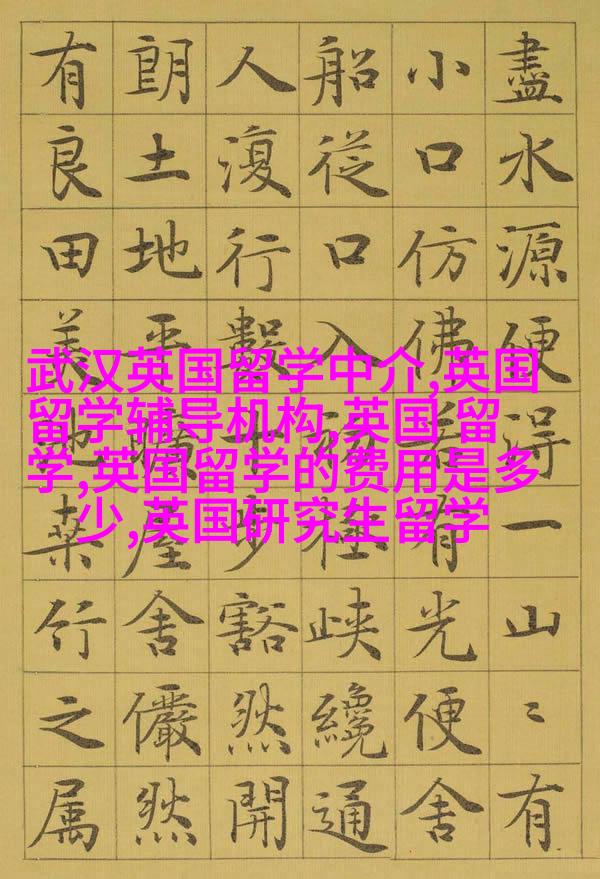 盡水源便得一山〻有
小口仿佛若有光便舍
船從口入初極峽纔通
人復行數十步豁然開
朗土地平曠屋舍儼然
有良田美池桑竹之属
武汉英国留学中介,英国
留学辅导机构,英国 留
学,英国留学的费用是多
少,英国研究生留学